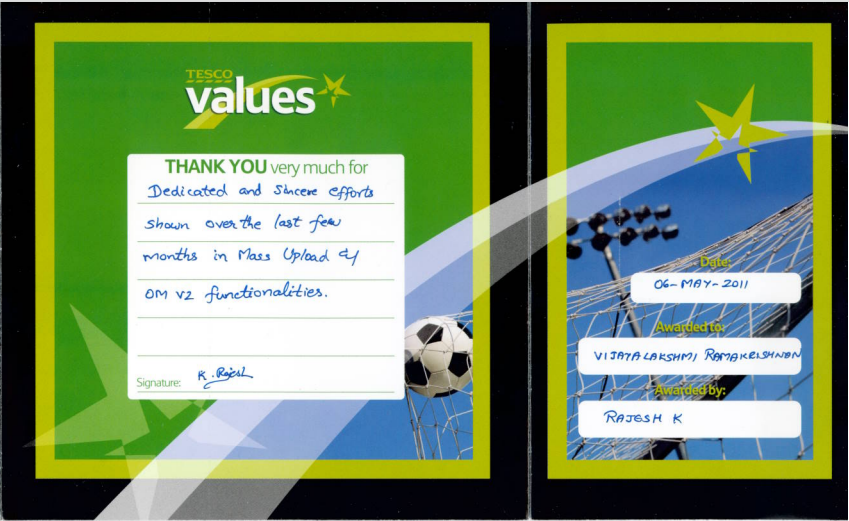 TESCO
values
THANK YOU very much for
Dedicated and Sincere efforts
shown over the last few
months in Mass Upload of
OM V2 functionalities.
Signature: K. Rajesh
Date:
06-MAY-2011
Awarded to:
VIJAYALAKSHMI RAMAKRISHNAN
Awarded by:
RAJESH K